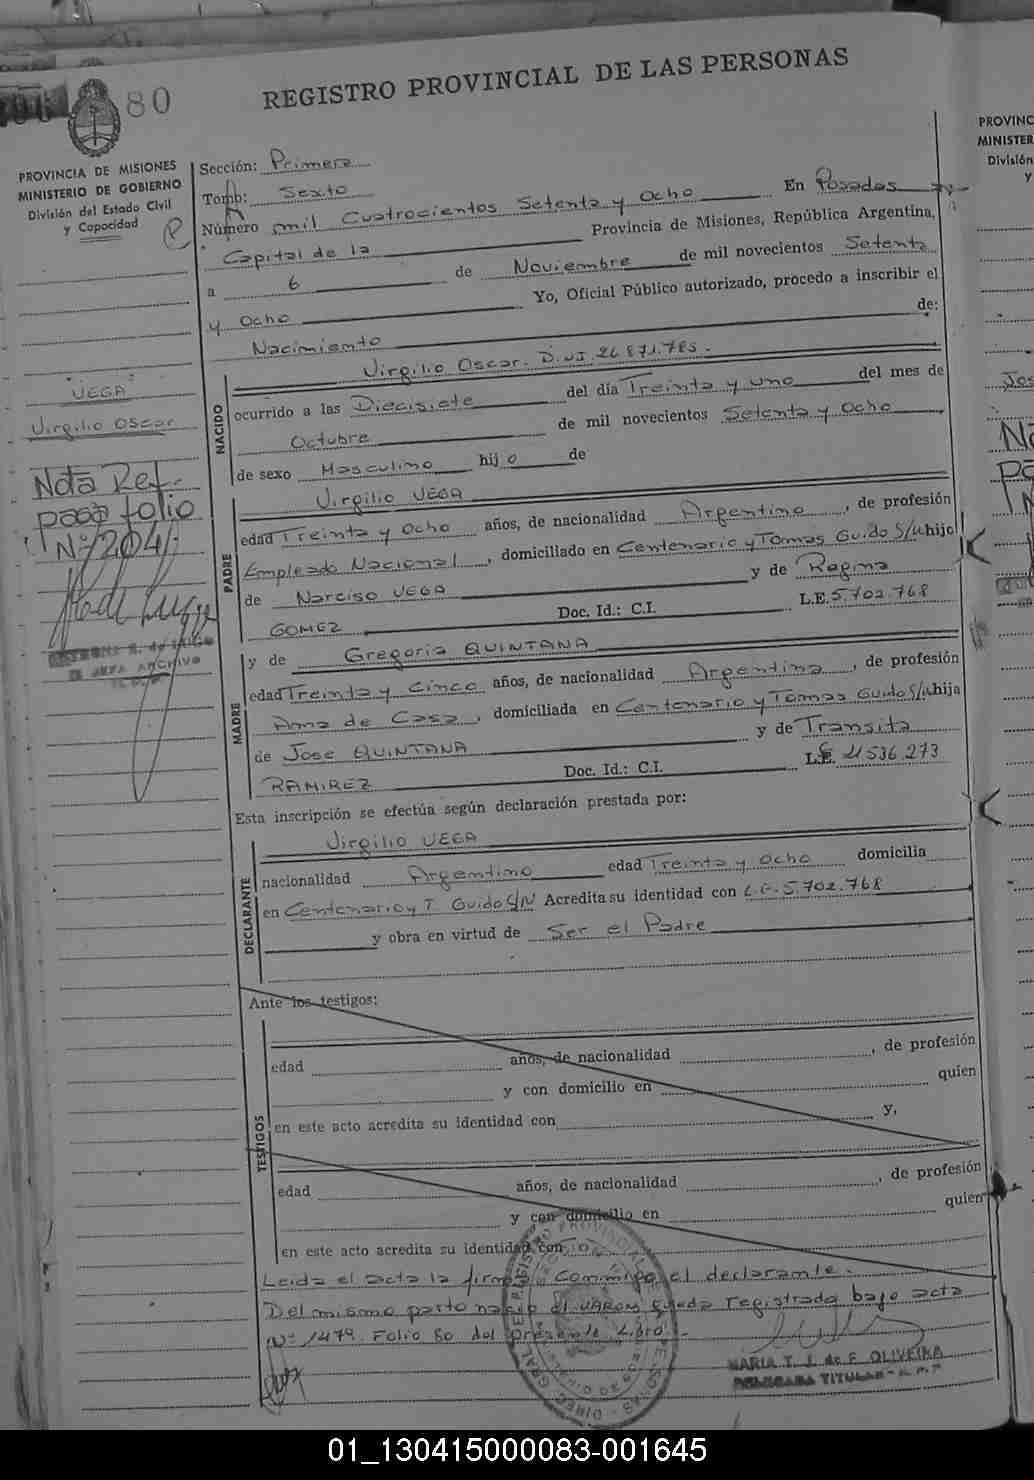 80
REGISTRO PROVINCIAL DE LAS PERSONAS
PROVINCIA DE MISIONES
MINISTERIO DE GOBIERNO
División del Estado Civil
y Capacidad
Sección: Primera
Tomo: Sexto
Número mil Cuatrocientos Setenta y Ocho En Posadas
Capital de la Provincia de Misiones, República Argentina,
a 6 de Noviembre de mil novecientos Setenta
y Ocho Yo, Oficial Público autorizado, procedo a inscribir el
Nacimiento de:
"VEGA"
Virgilio Oscar
Nota Ref.
pasa folio
Nº 204
NACIDO
Virgilio Oscar. D.N.I. 26.871.785.
ocurrido a las Diecisiete del día Treinta y uno del mes de
Octubre de mil novecientos Setenta y Ocho
de sexo Masculino hijo de
PADRE
Virgilio VEGA
edad Treinta y Ocho años, de nacionalidad Argentino, de profesión
Empleado Nacional, domiciliado en Centenario y Tomas Guido S/N hijo
de Narciso VEGA y de Regina
GOMEZ Doc. Id.: C.I. L.E. 5.702.768
MADRE
y de Gregoria QUINTANA
edad Treinta y Cinco años, de nacionalidad Argentina, de profesión
Ama de Casa, domiciliada en Centenario y Tomas Guido S/N hija
de Jose QUINTANA y de Transita
RAMIREZ Doc. Id.: C.I. 4.536.273
Esta inscripción se efectúa según declaración prestada por:
DECLARANTE
Virgilio VEGA
nacionalidad Argentino edad Treinta y Ocho domicilia
en Centenario y T. Guido S/N Acredita su identidad con L.E. 5.702.768
y obra en virtud de Ser el Padre
Ante los testigos:
TESTIGOS
edad años, de nacionalidad , de profesión
y con domicilio en quien
en este acto acredita su identidad con y,
edad años, de nacionalidad , de profesión
y con domicilio en quien
en este acto acredita su identidad con
Leida el acta la firma conmigo el declarante.
Del mismo parto nacio el VARON queda registrada bajo acta
Nº 1479. Folio 80 del presente Libro.
MARIA T. J. de F. OLIVEIRA
DELEGADA TITULAR - R. P. P.
PROVINC
MINISTER
División
y
01_130415000083-001645